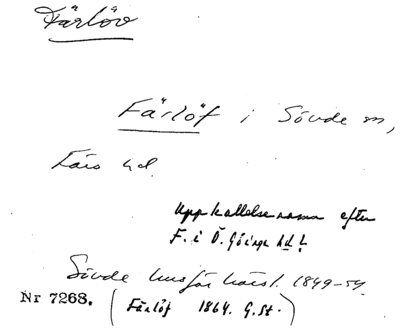 Färlöv
Färlöf i Sövde sn,
Färs hd.
Uppkallelsenamn efter
F. i Ö. Göinge hd!
Sövde husförhörsl. 1849-54.
Nr 7268. (Färlöf 1864. G.St.)